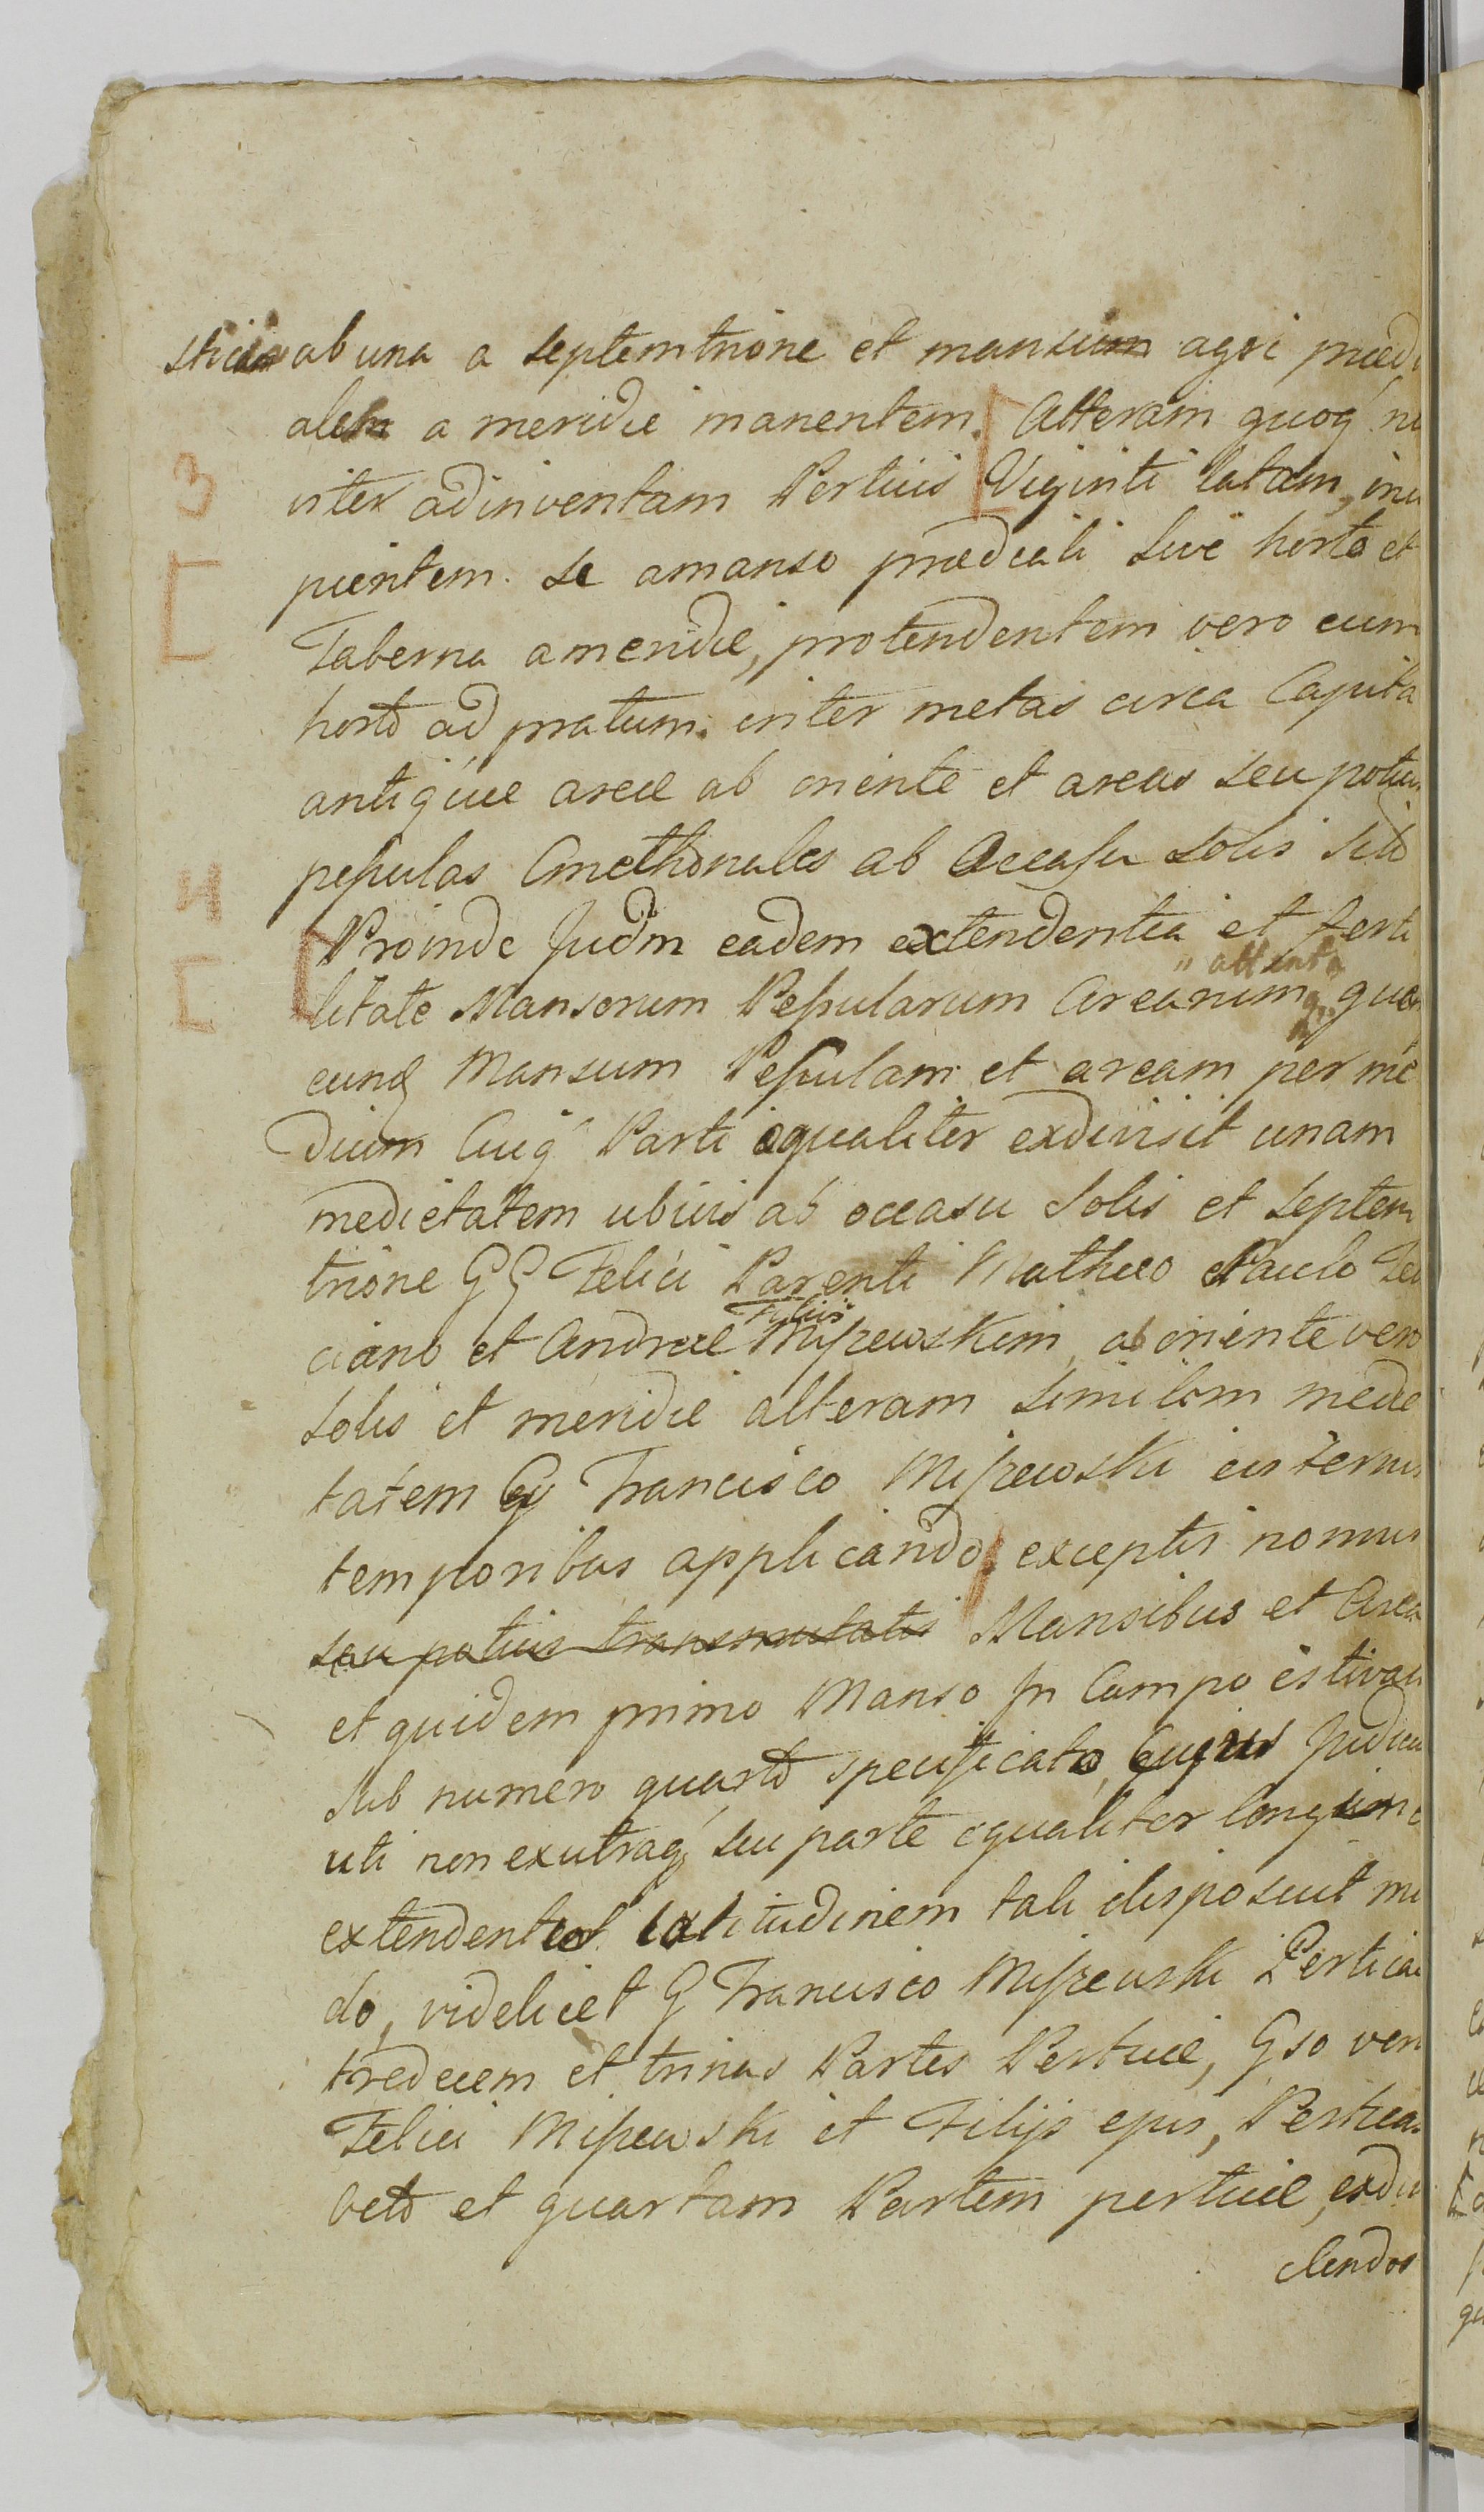 ab una a septemtrione et mansum agri præd
alem a meridie manentem. Alteram quoq
viter adinventam Perticis Viginti latam, in
pientem se a manso prædiali sive horto et
Taberna a meridie, protendentem vero cum
horto ad pratum. inter metas circa Capita
antiquæ areæ ab oriente et areas seu potius
peſsulas Cmethonales ab Occaſu Solis Sito
Proinde Judm eadem extendentia et ferti
" attenta
litate Mansorum Peſsularum Arearum
cunq Mansum Peſsulam et aream per me
dium Cuiq Parti equaliter exdivisit unam
medietatem ubivis ab occasu Solis et Septem
trione GG Felici Parenti Matheo Paulo Fe
Filiis
ciano et Andreæ Miſzewskim, ab oriente vero
Solis et meridie alteram similem medie
tatem G Francisco Miſzewski
temporibus applicando, exceptis
seu potius transmutatis Mansibus et Area
et quidem primo Manso Jn Campo estivali
Sub numero quarto specificato, Cujus Judiciu
uti non ex utraq seu parte equaliter
extendentes latitudinem tali disposuit mo
do, videlicet G Francisco Miſzewski Perticas
tredecem et trinas Partes Perticæ, Gso vero
Felici Miſzewski et Filijs ejus, Perticas
octo et quartam Partem perticæ,
3
4